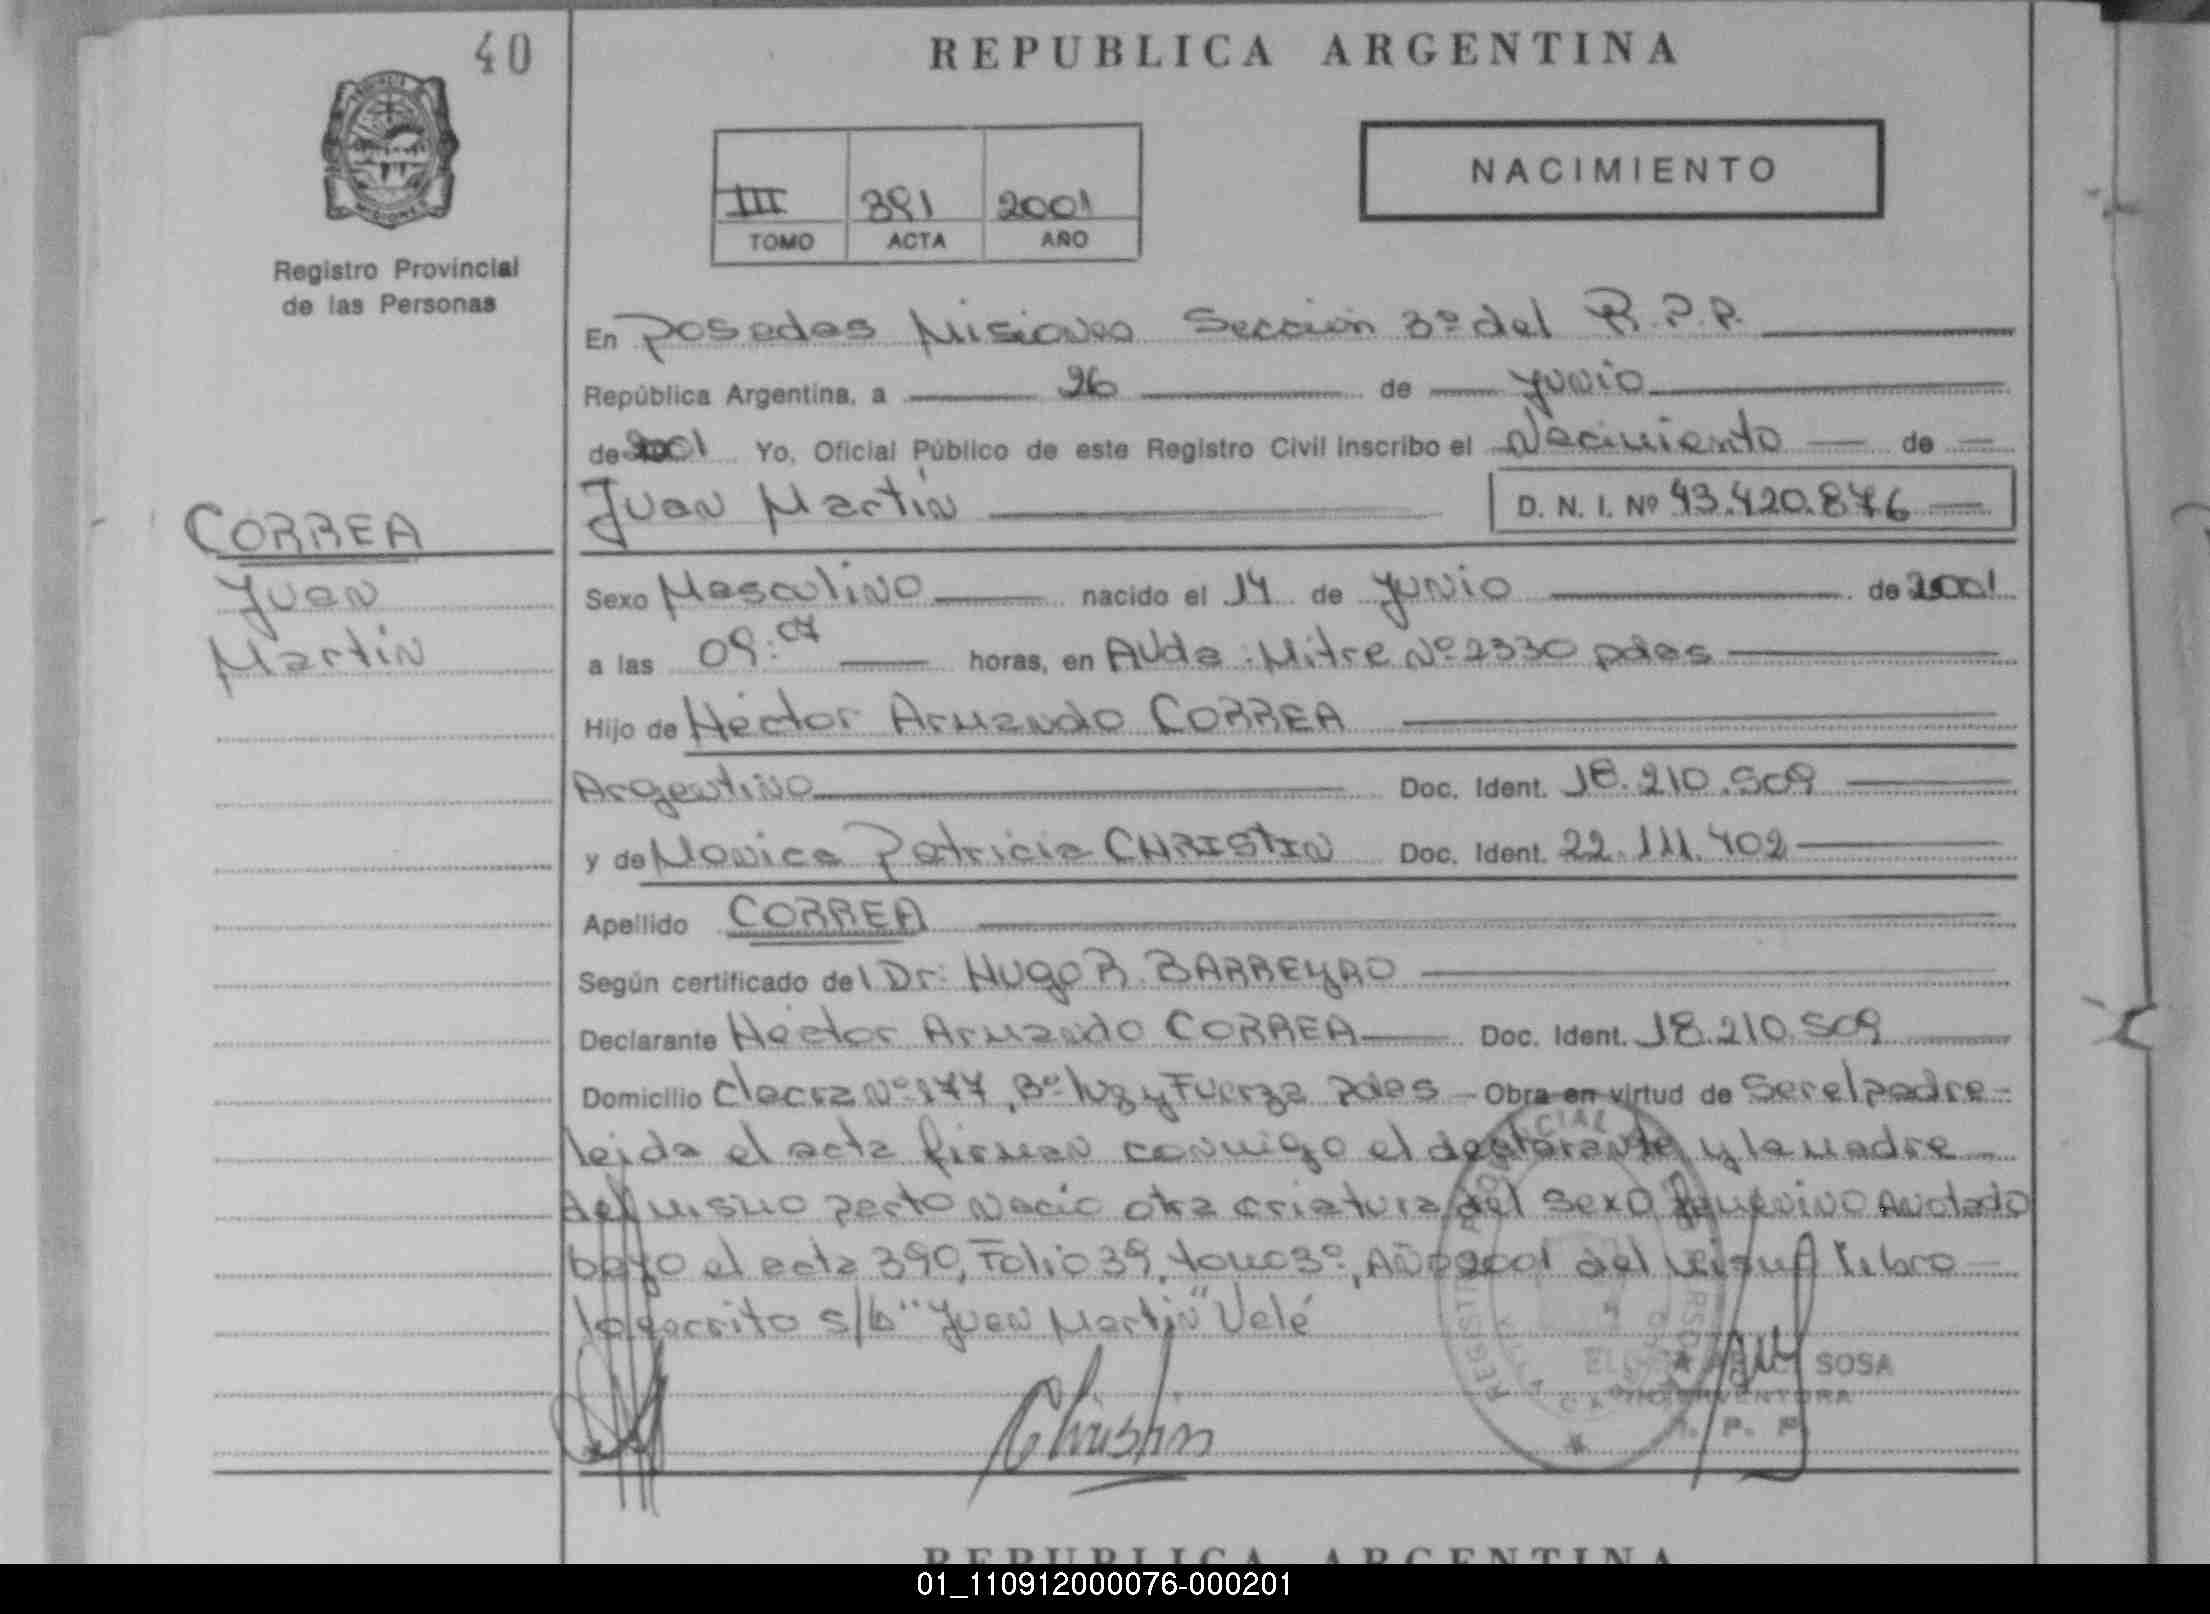 40
REPUBLICA ARGENTINA
III 391 2001
TOMO ACTA AÑO
NACIMIENTO
Registro Provincial
de las Personas
En Posadas Misiones Sección 3º del R.P.P.
República Argentina, a 26 de junio
de 2001 Yo, Oficial Público de este Registro Civil inscribo el Nacimiento de
Juan Martin D. N. I. Nº 43.420.876
CORREA
Juan
Martin
Sexo Masculino nacido el 14 de junio de 2001
a las 09:07 horas, en Avda. Mitre Nº 2330 pdas
Hijo de Héctor Armando CORREA
Argentino Doc. Ident. 18.210.509
y de Monica Patricia CHRISTIN Doc. Ident. 22.111.402
Apellido CORREA
Según certificado del Dr: Hugo R. BARREYRO
Declarante Héctor Armando CORREA Doc. Ident. 18.210.509
Domicilio Chacra Nº 177, Bº luz y Fuerza Pdas Obra en virtud de Ser el padre
leida el acta firman conmigo el declarante y la madre
del mismo parto nació otra criatura del sexo femenino Anotado
bajo el acta 390, Folio 39, tomo 3º, Año 2001 del mismo libro
lo escrito s/b "Juan Martin" Vale
Christin
SOSA
R. P. P.
REPUBLICA ARGENTINA
01_110912000076-000201